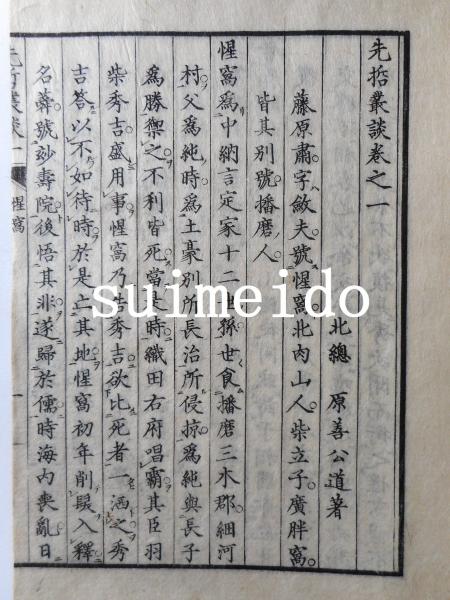 先哲叢談卷之一
北總 原善公道著
藤原肅字斂夫號惺窩北肉山人柴立子廣胖窩
皆其別號播磨人
惺窩爲中納言定家十二世孫世食播磨三木郡細河
村父爲純時爲土豪別所長治所侵掠爲純與長子
爲勝禦之不利皆死當是時織田右府唱霸其臣羽
柴秀吉盛用事惺窩乃告秀吉欲比死者一洒之秀
吉答以不如待時於是亡其地惺窩初年削髮入釋
名蕣號妙壽院後悟其非遂歸於儒時海內喪亂日
先哲叢談一
惺窩
一
suimeido